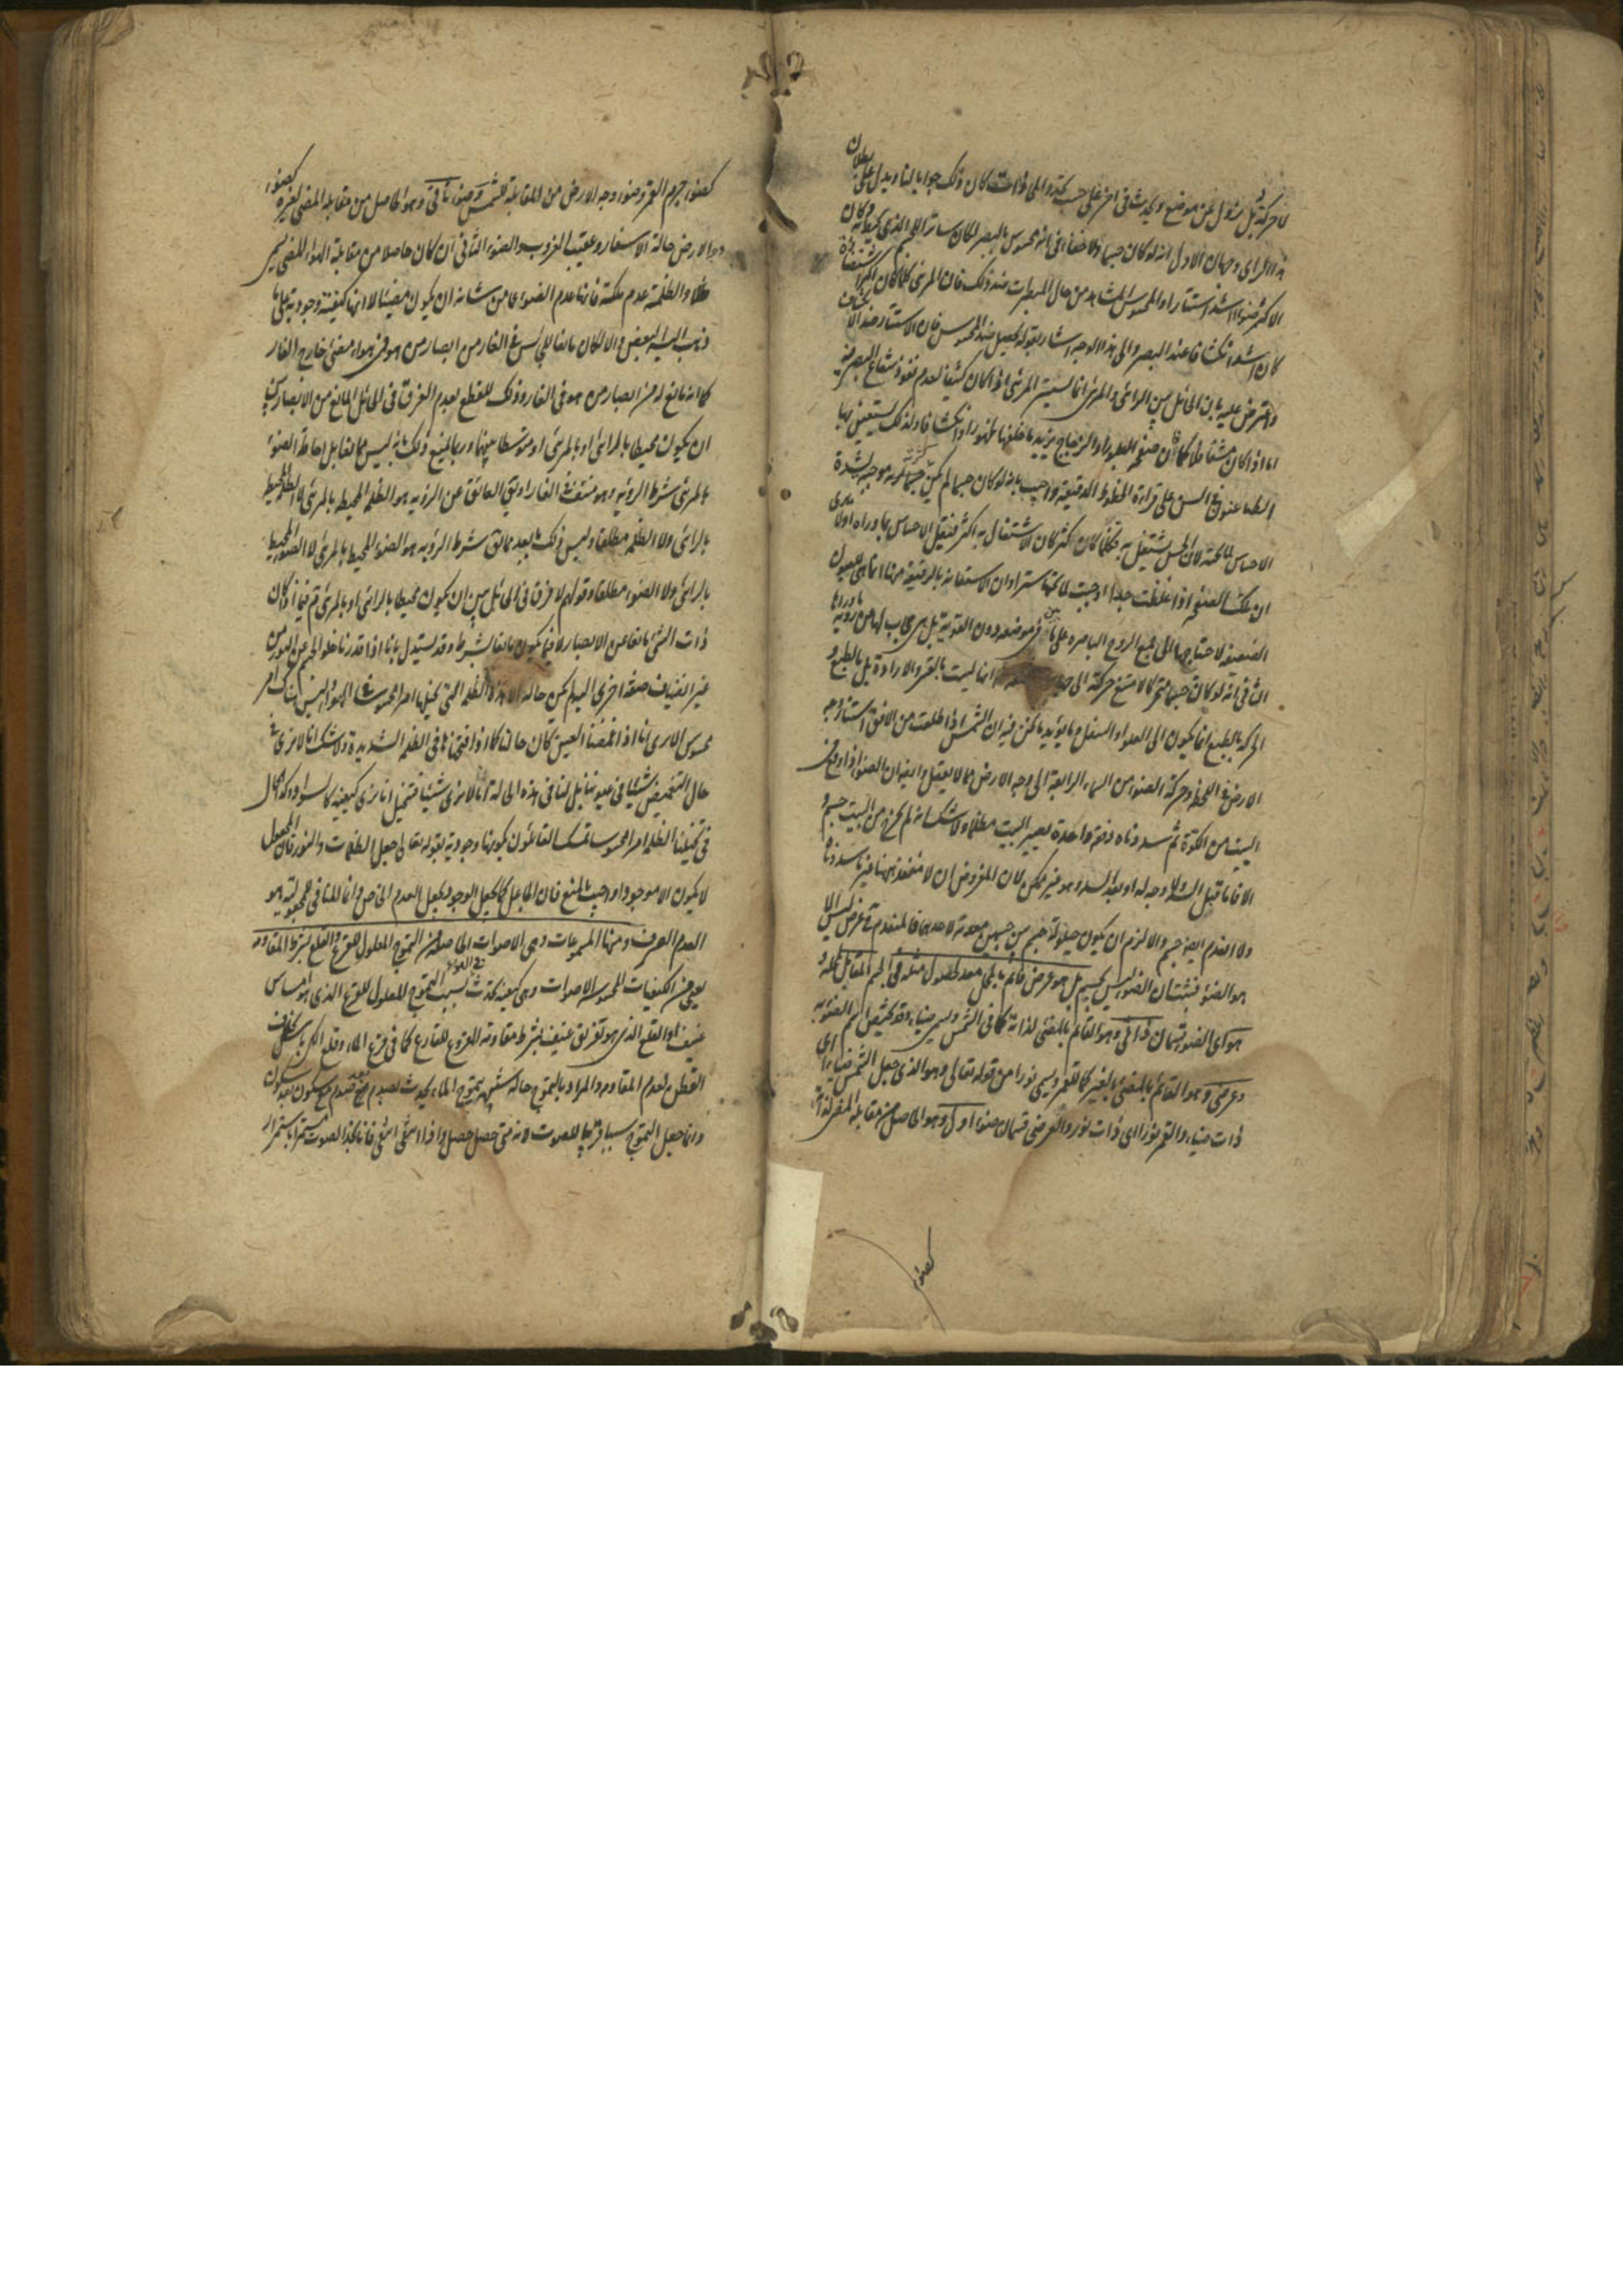 لا حركة بل يزول عن موضع ويحدث في اخر على حسب تجدد المحاذات كان ذلك جوابا لنا ويدل على بطلان
هذا الراى وجهان الاول انه لو كان جسما ولا خفاء في انه محسوس بالبصر لكان ساترا للجسم الذى تحته وكان
الاكثر ضوءا اشد استتارا والمحسوس المشاهد من حال المبصرات ضد ذلك فان المرئى كلما كان اكثر استضاءة
كان اشد انكشافا عند البصر والى هذا الوجه اشار بقوله لحصل ضد المحسوس فان الاستتار ضد الانكشاف
واعترض عليه بان الحائل بين الرائى والمرئى انما يستر المرئى اذا كان كثيفا لعدم نفوذ شعاع البصر فيه
اما اذا كان شفافا فلا كما ان صفحة البلور او الزجاج يزيد ما خلفها ظهورا وانكشافا ولذلك يستعين بها
الطاعنون في السن على قراءة الخطوط الدقيقة واجيب بانه لو كان جسما لم يكن كثرته موجبة لشدة
الاحساس بما تحته لان الحس يشتغل به فكلما كان اكثر كان الاشتغال به اكثر فيقل الاحساس بما وراه اولا يرى
ان تلك الصفحة اذا غلظت جدا اوجبت لما تحتها سترا وان الاستعانة بالرقيقة منها انما هي للعيون
الضعيفة لاحتياجها الى جمع الروح الباصرة على ما بين في موضعه دون القوية بل هي حجاب لها عن رؤية ما وراها
الثاني انه لو كان جسما متحركا لامتنع حركته الى جهات انها ليست بالقسر والارادة بل بالطبع و
الحركة بالطبع انما يكون الى العلو او السفل ومما يؤيد ما نحن فيه ان الشمس اذا طلعت من الافق استنار وجه
الارض في اللحظة وحركة الضوء من السماء الرابعة الى وجه الارض مما لا يعقل وايضا ان الضوء اذا وقع في
البيت من الكوة ثم سددناه دفعة واحدة يصير البيت مظلما ولا شك انه لم يخرج من البيت جسم و
الا فاما قبل السد ولا وجه له او بعد السد وهو غير ممكن لان المفروض ان لا منفذ هناك غير ما سددناه
ولا انعدم ايضا جسم والا لزم ان يكون حيلولة جسم بين جسمين معدمة لاحدهما فالمنعدم عرض ليس الا
هو الضوء فثبت ان الضوء ليس بجسم بل هو عرض قائم بالمحل معد لحصول مثله في الجسم المقابل لمحله و
هو اى الضوء قسمان ذاتى وهو القائم بالمضئ لذاته كما في الشمس ويسمى ضياء وقد يختص اسم الضوء به
وعرضى وهو القائم بالمضئ بالغير كما للقمر ويسمى نورا من قوله تعالى وهو الذى جعل الشمس ضياء اى
ذات ضياء والقمر نورا اى ذات نور والعرضى قسمان ضوء اول وهو الحاصل من مقابلة المضئ لذاته
كضوء
كضوء جرم القمر وضوء وجه الارض من المقابلة للشمس وضوء ثانى وهو الحاصل من مقابلة المضئ لغيره كضوء
وجه الارض حالة الاسفار وعقيب الغروب والضوء الثاني ان كان حاصلا من مقابلة الهواء المضئ يسمى
ظلا والظلمة عدم ملكة فانها عدم الضوء عما من شانه ان يكون مضيئا لا انها كيفية وجودية على ما
ذهب اليه البعض والا لكان مانعا للجالس في الغار من ابصار من هو في هواء مضئ خارج الغار
كما انه مانع له من ابصار من هو في الغار وذلك للقطع بعدم الفرق في الحائل المانع من الابصار بين
ان يكون محيطا بالرائى او بالمرئى او متوسطا بينهما وربما يمنع ذلك بانه ليس مما تقابل احاطة الضوء
بالمرئى شرط الرؤية وهو منتف في الغار او بقى العائق عن الرؤية هو الظلمة المحيط بالمرئى لا الظلمة المحيطة
بالرائى ولا الظلمة مطلقا وليس ذلك بابعد مما قال شرط الرؤية هو الضوء المحيط بالمرئى لا الضوء المحيط
بالرائى ولا الضوء مطلقا وقولهم لا فرق في الحائل بين ان يكون محيطا بالرائى او بالمرئى تم فيما اذا كان
ذات الشئ مانعا عن الابصار لا فيما يكون مانعا لشرط وقد يستدل بانا اذا قدرنا خلو الجسم عن النور من
غير انضياف صفة اخرى اليه لم يكن حاله الا هذه الظلمة التي تخيلها امرا محسوسا في الهواء وليس هناك امر
محسوس الا يرى انا اذا غمضنا العين كان حالنا كما اذا فتحناها في الظلمة الشديدة ولا شك انا لا نرى في
حال التغميض شيئا في عيوننا بل لنا في هذه الحالة انا لا نرى شيئا فنتخيل انا نرى كيفية كالسواد وكذا الحال
في تخيلنا الظلمة امرا محسوسا تمسك القائلون بكونها وجودية بقوله تعالى جعل الظلمات والنور فان المجعول
لا يكون الا موجودا واجيب بالمنع فان الجاعل كما يجعل الوجود يجعل العدم الخاص وانما المنافى للمجعولية هو
العدم الصرف ومنها المسموعات وهي الاصوات الحاصلة من التموج المعلول للقرع والقلع بشرط المقاومة
يعنى من الكيفيات المحسوسة الاصوات وهي كيفية تحدث في الهواء بسبب التموج المعلول للقرع الذى هو امساس
عنيف والقلع الذى هو تفريق عنيف بشرط مقاومة المقروع للقارع كما في قرع الماء وقلع الكرباس بخلاف
القطن لعدم المقاومة والمراد بالتموج حالة شبيهة بتموج الماء يحدث بصدم بعد صدم مع سكون بعد سكون
وانما جعل التموج سببا قريبا للصوت لانه متى حصل حصل واذا انتفى انتفى فانا نجد الصوت مستمرا باستمرار